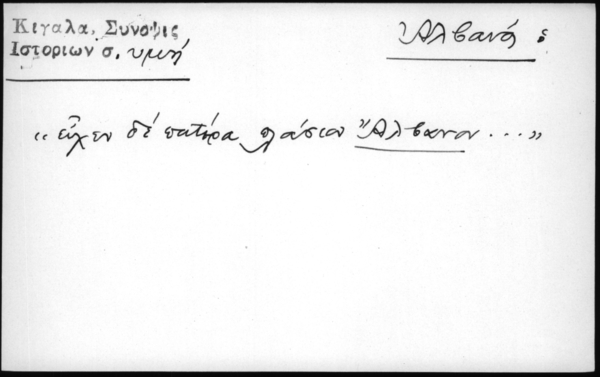 Κιγαλα, Συνοψις
Ιστοριων σ. υμνή
Ἀλβανός :
« εἶχεν δέ πατέρα Ἄλβανον ... »